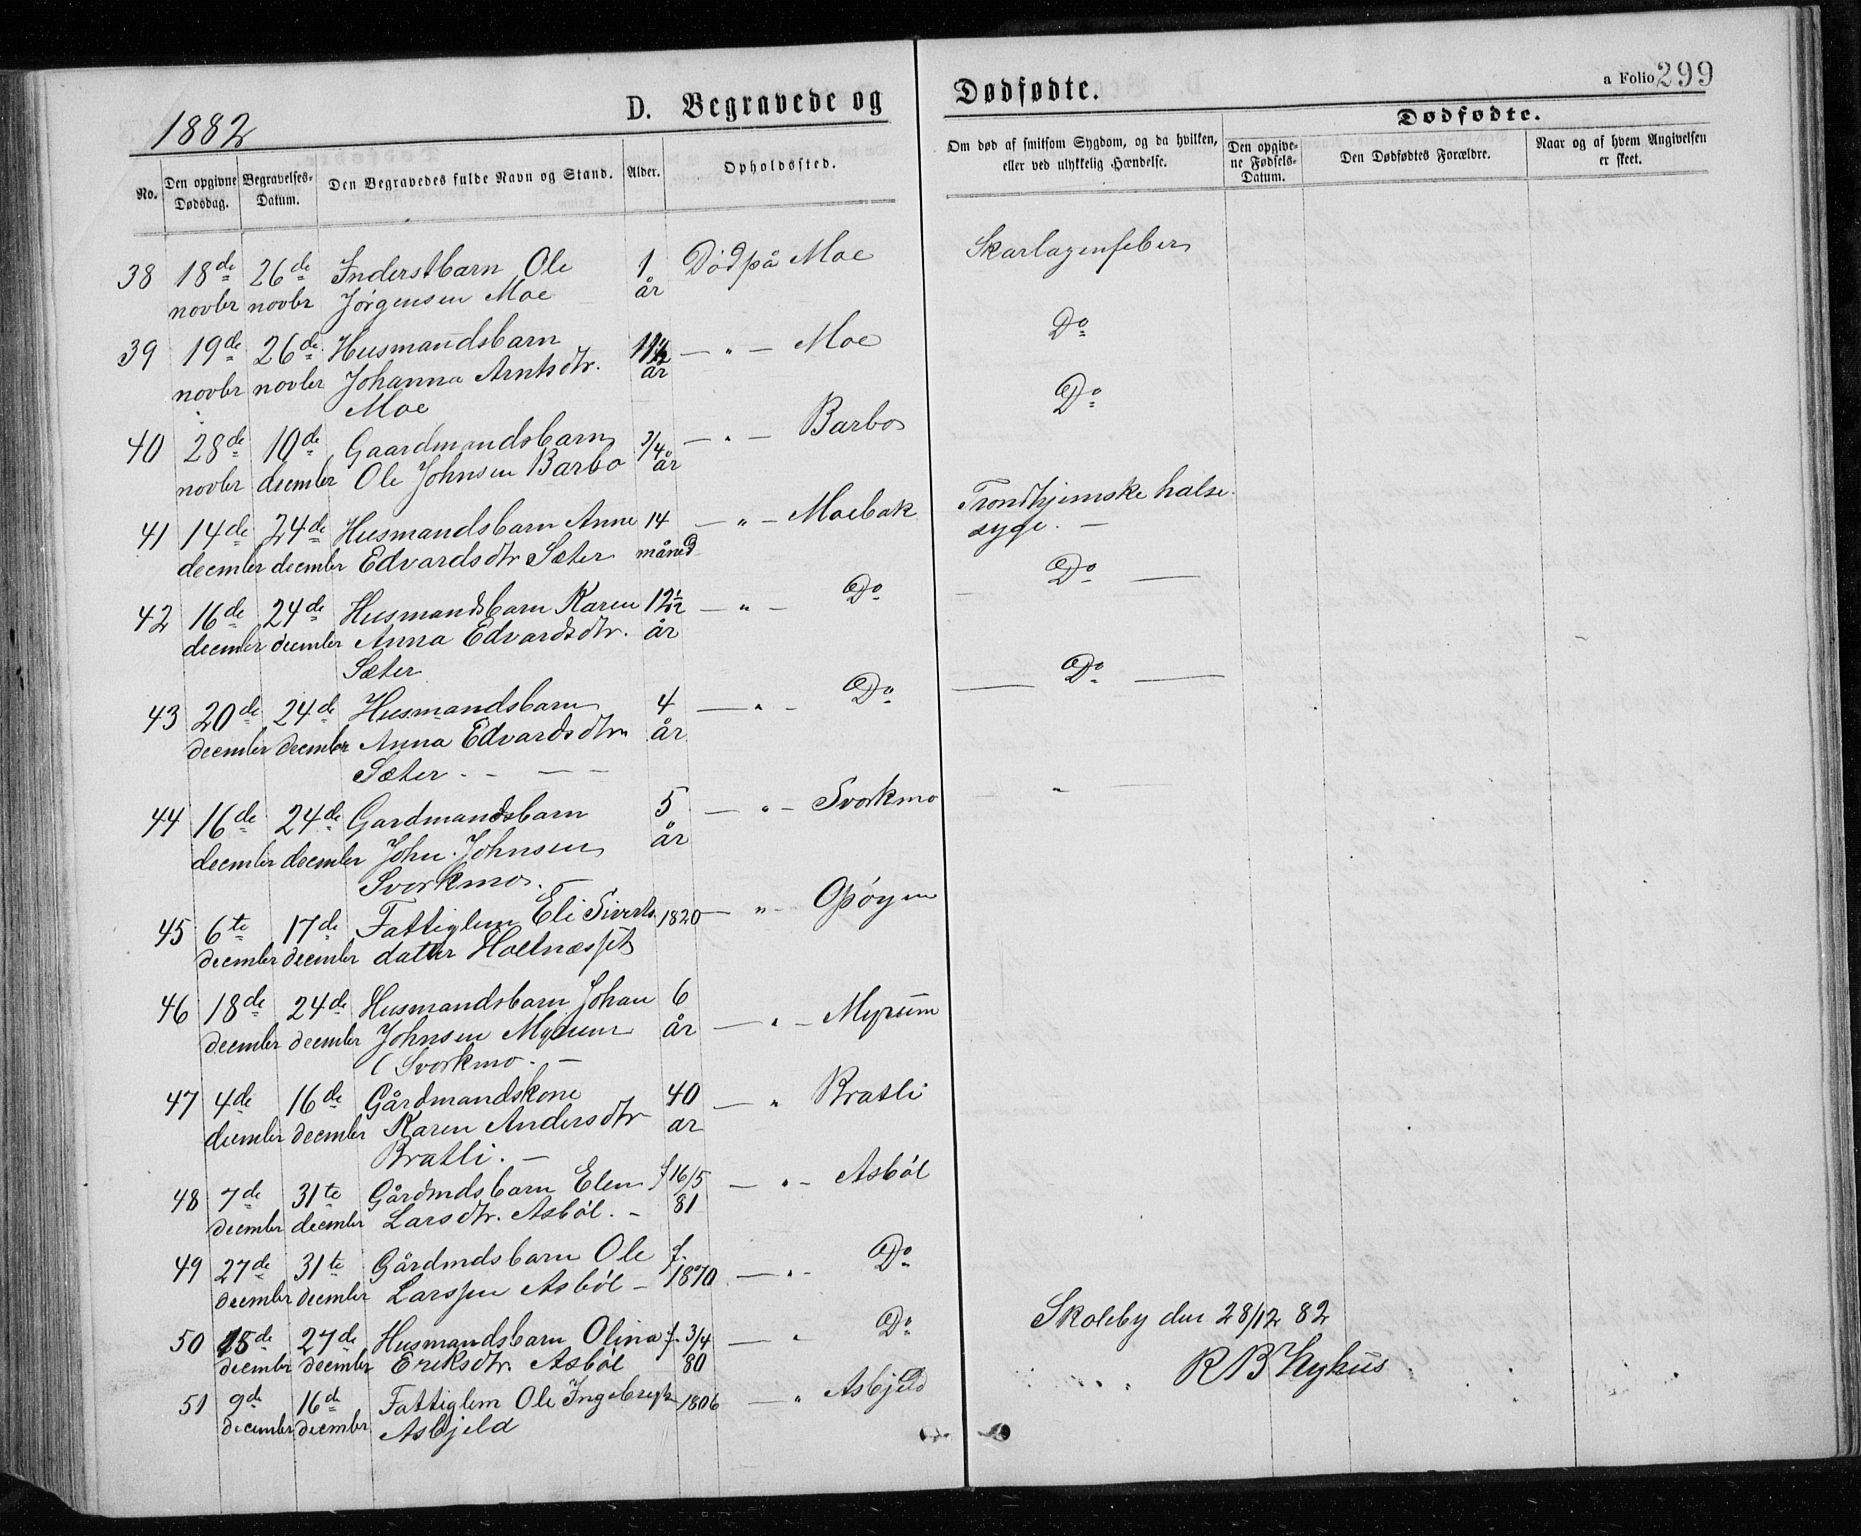 a Folio 299
1882
D. Begravede og Dødfødte.
Dødfødte.
No.
Den opgivne Dødsdag.
Begravelses-Datum.
Den Begravedes fulde Navn og Stand.
Alder.
Opholdssted.
Om død af smitsom Sygdom, og da hvilken, eller ved ulykkelig Hændelse.
Den opgivne Fødsels-Datum.
Den Dødfødtes Forældre.
Naar og af hvem Angivelsen er skeet.
38 18de 26de Inderstbarn Ole 1 Død på Moe Skarlagenfeber
novbr novbr Jörgensen Moe år
39 19de 26de Husmandsbarn — " — Moe Do
novbr novbr Johanna Arntsdtr. år
Moe
40 28de 10de Gaardmandsbarn 3/4 — " — Barbo Do
novbr december Ole Johnsen Barbo år
41 14de 24de Husmandsbarn Anne 14 — " — Moebak Trondhjemske halse-
december december Edvardsdtr Sæter måned syge. —
42 16de 24de Husmandsbarn Karen 12 1/12 — " — Do — Do —
december december Anna Edvardsdtr. år
Sæter
43 20de 24de Husmandsbarn 4 — " — Do — Do —
december december Anna Edvardsdtr år
Sæter. - — —
44 16de 24de Gardmandsbarn 5 — " — Svorkmo — " —
december december John Johnsen år
Svorkmo.
45 6te 17de Fattiglem Eli Siverts 1820 — " — Opöyen
december december datter Holtnæsset
46 18de 24de Husmandsbarn Johan 6
december december Johnsen Myrum år — " — Myrum
(Svorkmo. —
47 4de 16de Gårdmandskone 40 — " Bratli
december december Karen Andersdtr ar
Bratli. —
48 7de 31te Gårdmdsbarn Elen f 16/5 — " — Asböl
december december Larsdtr. Asböl. - 81
49 27de 31te Gårdmdsbarn Ole f. — " — Do
december december Larssen Asböl — 1870
50 15de 27de Husmandsbarn Olina f. 3/4 — " Do
december december Eriksdtr. Asböl 80
51 9de 16de Fattiglem Ole Ingebregts 1806 — " Asbjeld
december december Asbjeld
Skoleby den 28/12 82
R B Nyhus